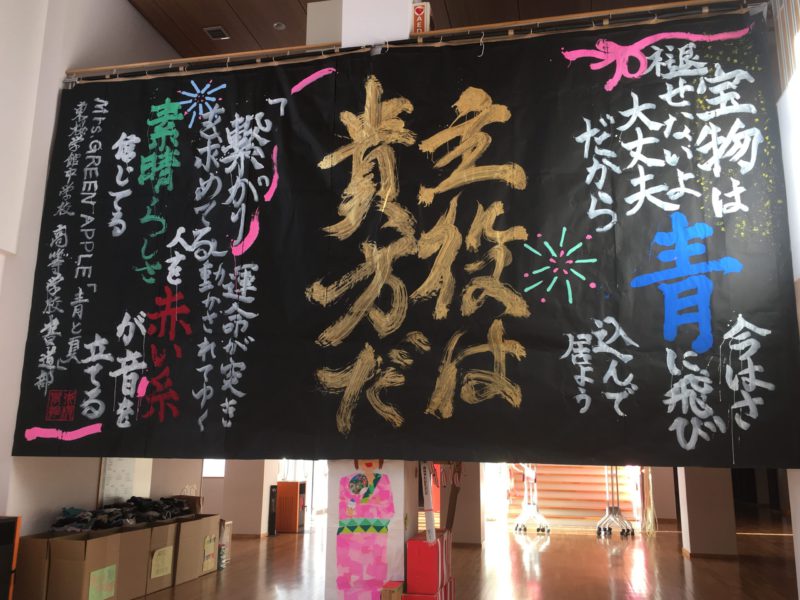 宝物は
褪せないよ
大丈夫
だから
今はさ
青に飛び
込んで
居よう
主役は
貴方だ
「繋がり
を求めてる
人を
素晴らしさ
信じてる
運命が突き
動かされてゆく
赤い糸
が音を
立てる
Mrs. GREEN APPLE「青と夏」
東桜学館中学校 高等学校 書道部